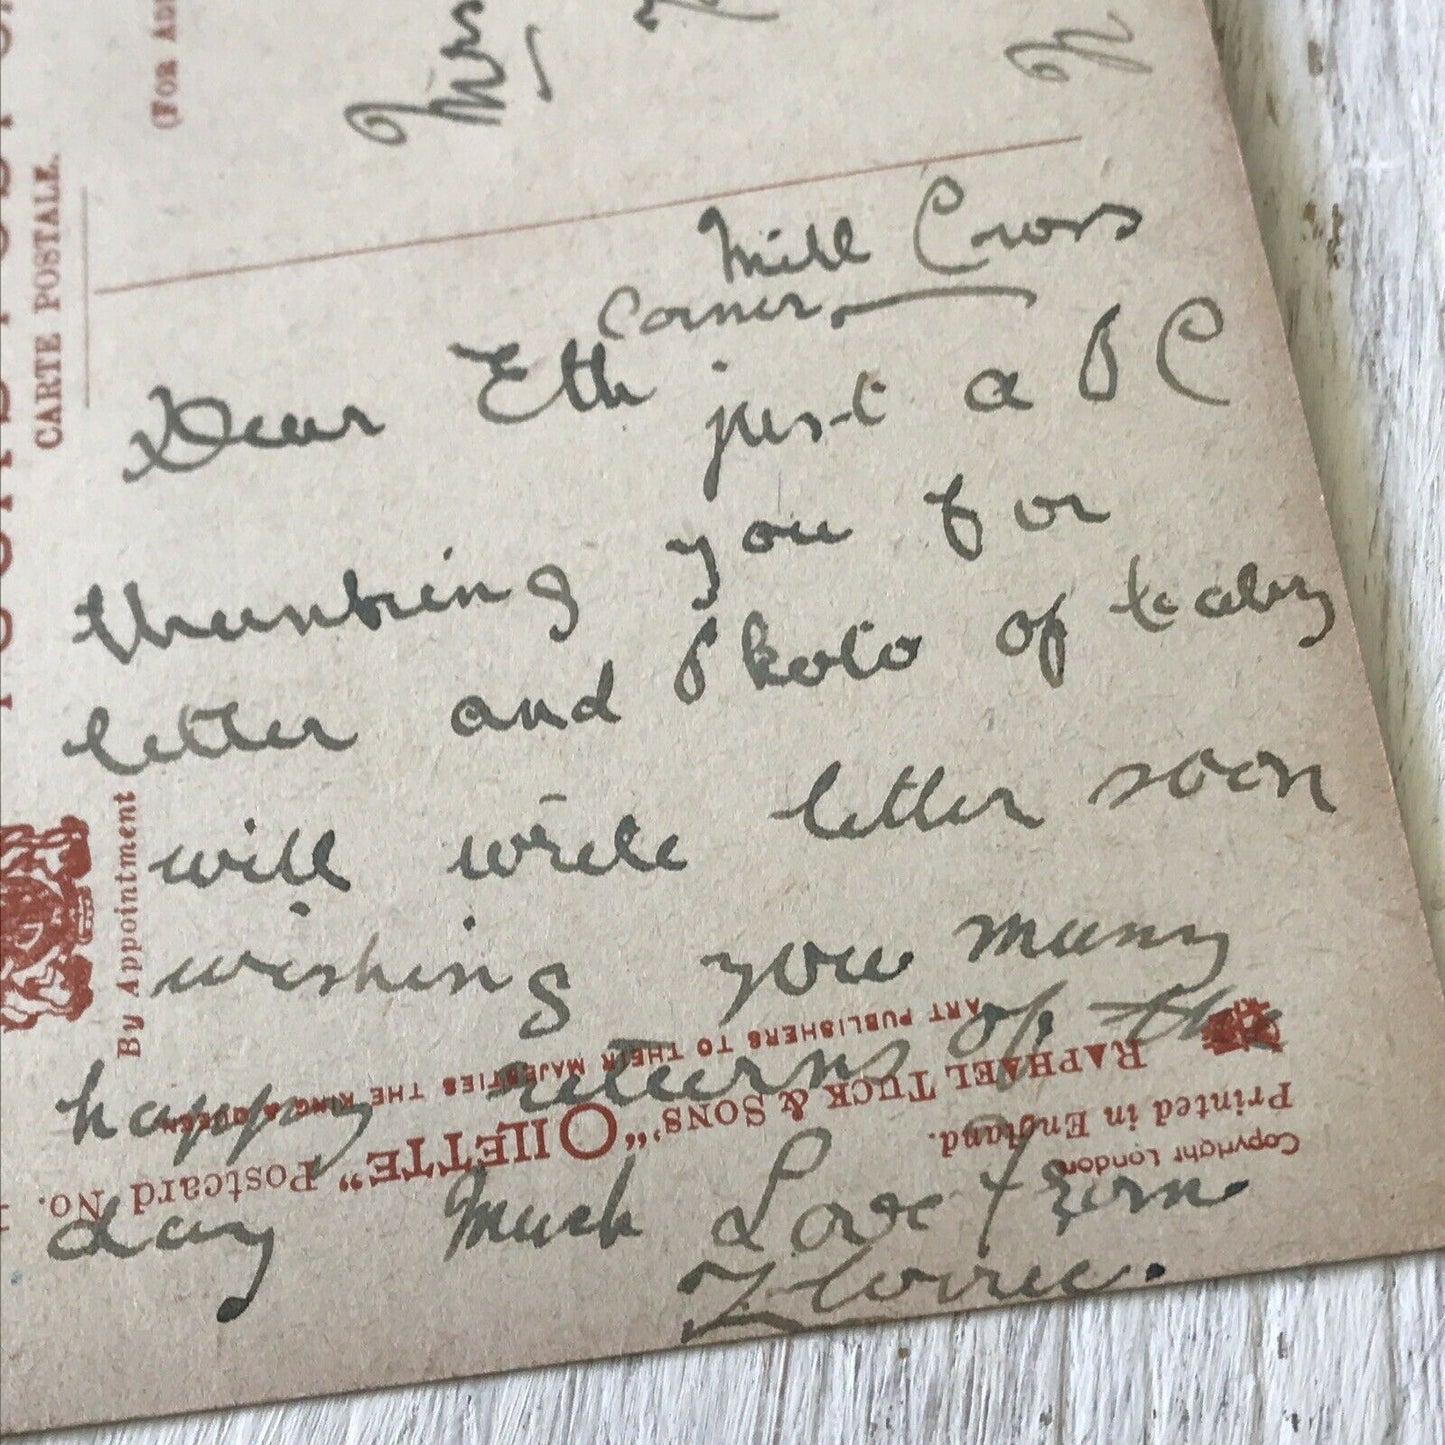 CARTE POSTALE.
(FOR
Mrs
Mill Cross
Corner
Dear Eth just a PC
thanking you for
letter and Photo of baby
will write letter soon
wishing you many
happy returns of the
day Much Love from
Florrie.
By Appointment
ART PUBLISHERS TO THEIR MAJESTIES THE KING & QUEEN
RAPHAEL TUCK & SONS' "OILETTE" Postcard No.
Printed in England.
Copyright London